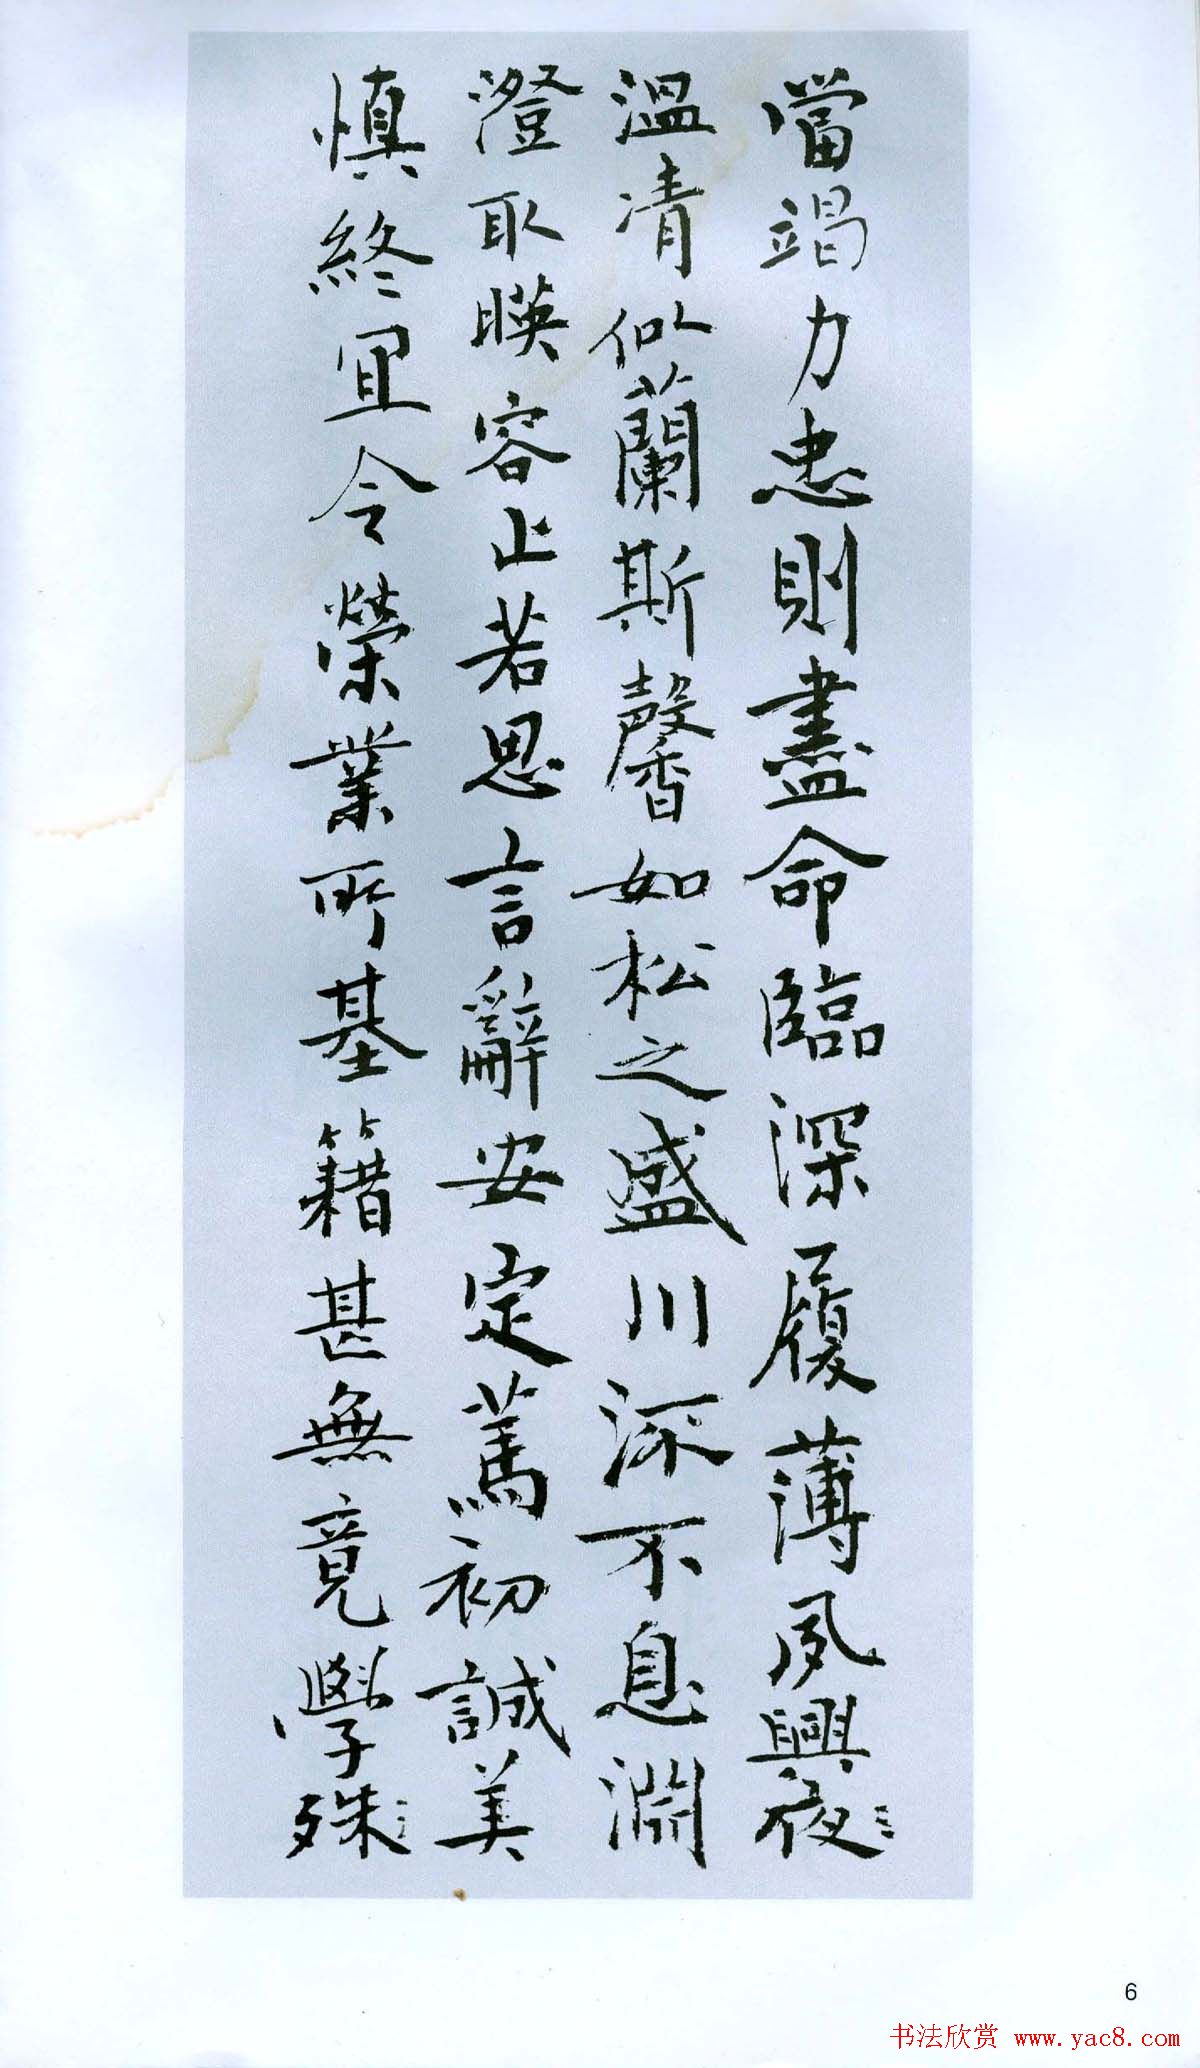 當竭力忠則盡命臨深履薄夙興夜
溫凊似蘭斯馨如松之盛川流不息淵
澄取暎容止若思言辭安定篤初誠美
慎終宜令榮業所基籍甚無竟學殊
6
书法欣赏 www.yac8.com